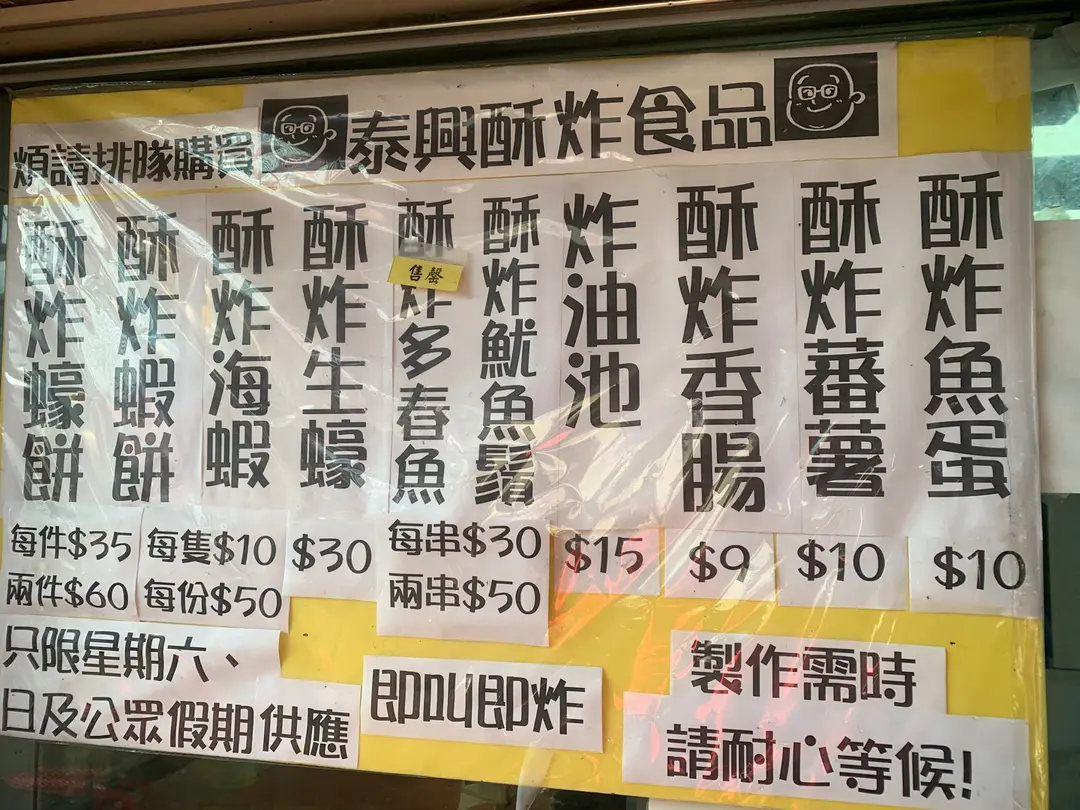 煩請排隊購買
泰興酥炸食品
酥炸蠔餅
酥炸蝦餅
酥炸海蝦
酥炸生蠔
酥炸多春魚
售罄
酥炸魷魚鬚
炸油池
酥炸香腸
酥炸蕃薯
酥炸魚蛋
每件$35
兩件$60
每隻$10
每份$50
$30
每串$30
兩串$50
$15
$9
$10
$10
只限星期六、
日及公眾假期供應
即叫即炸
製作需時
請耐心等候!